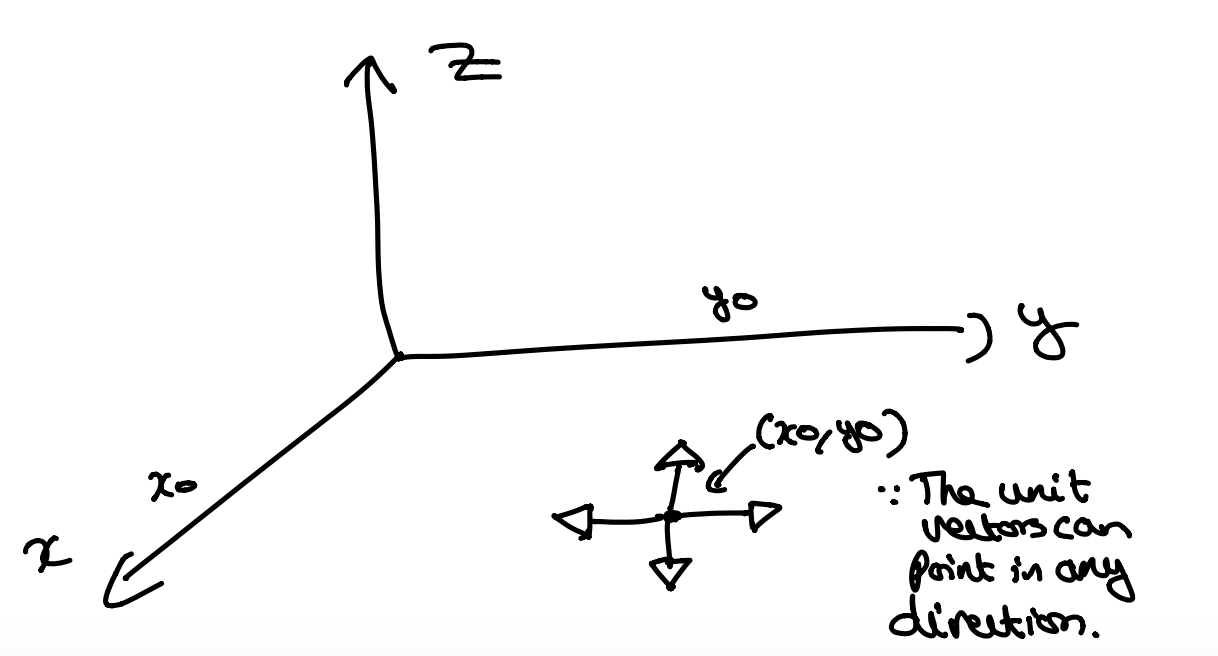 z
y0
y
(x0, y0)
x0
x
∵ The unit
vectors can
point in any
direction.